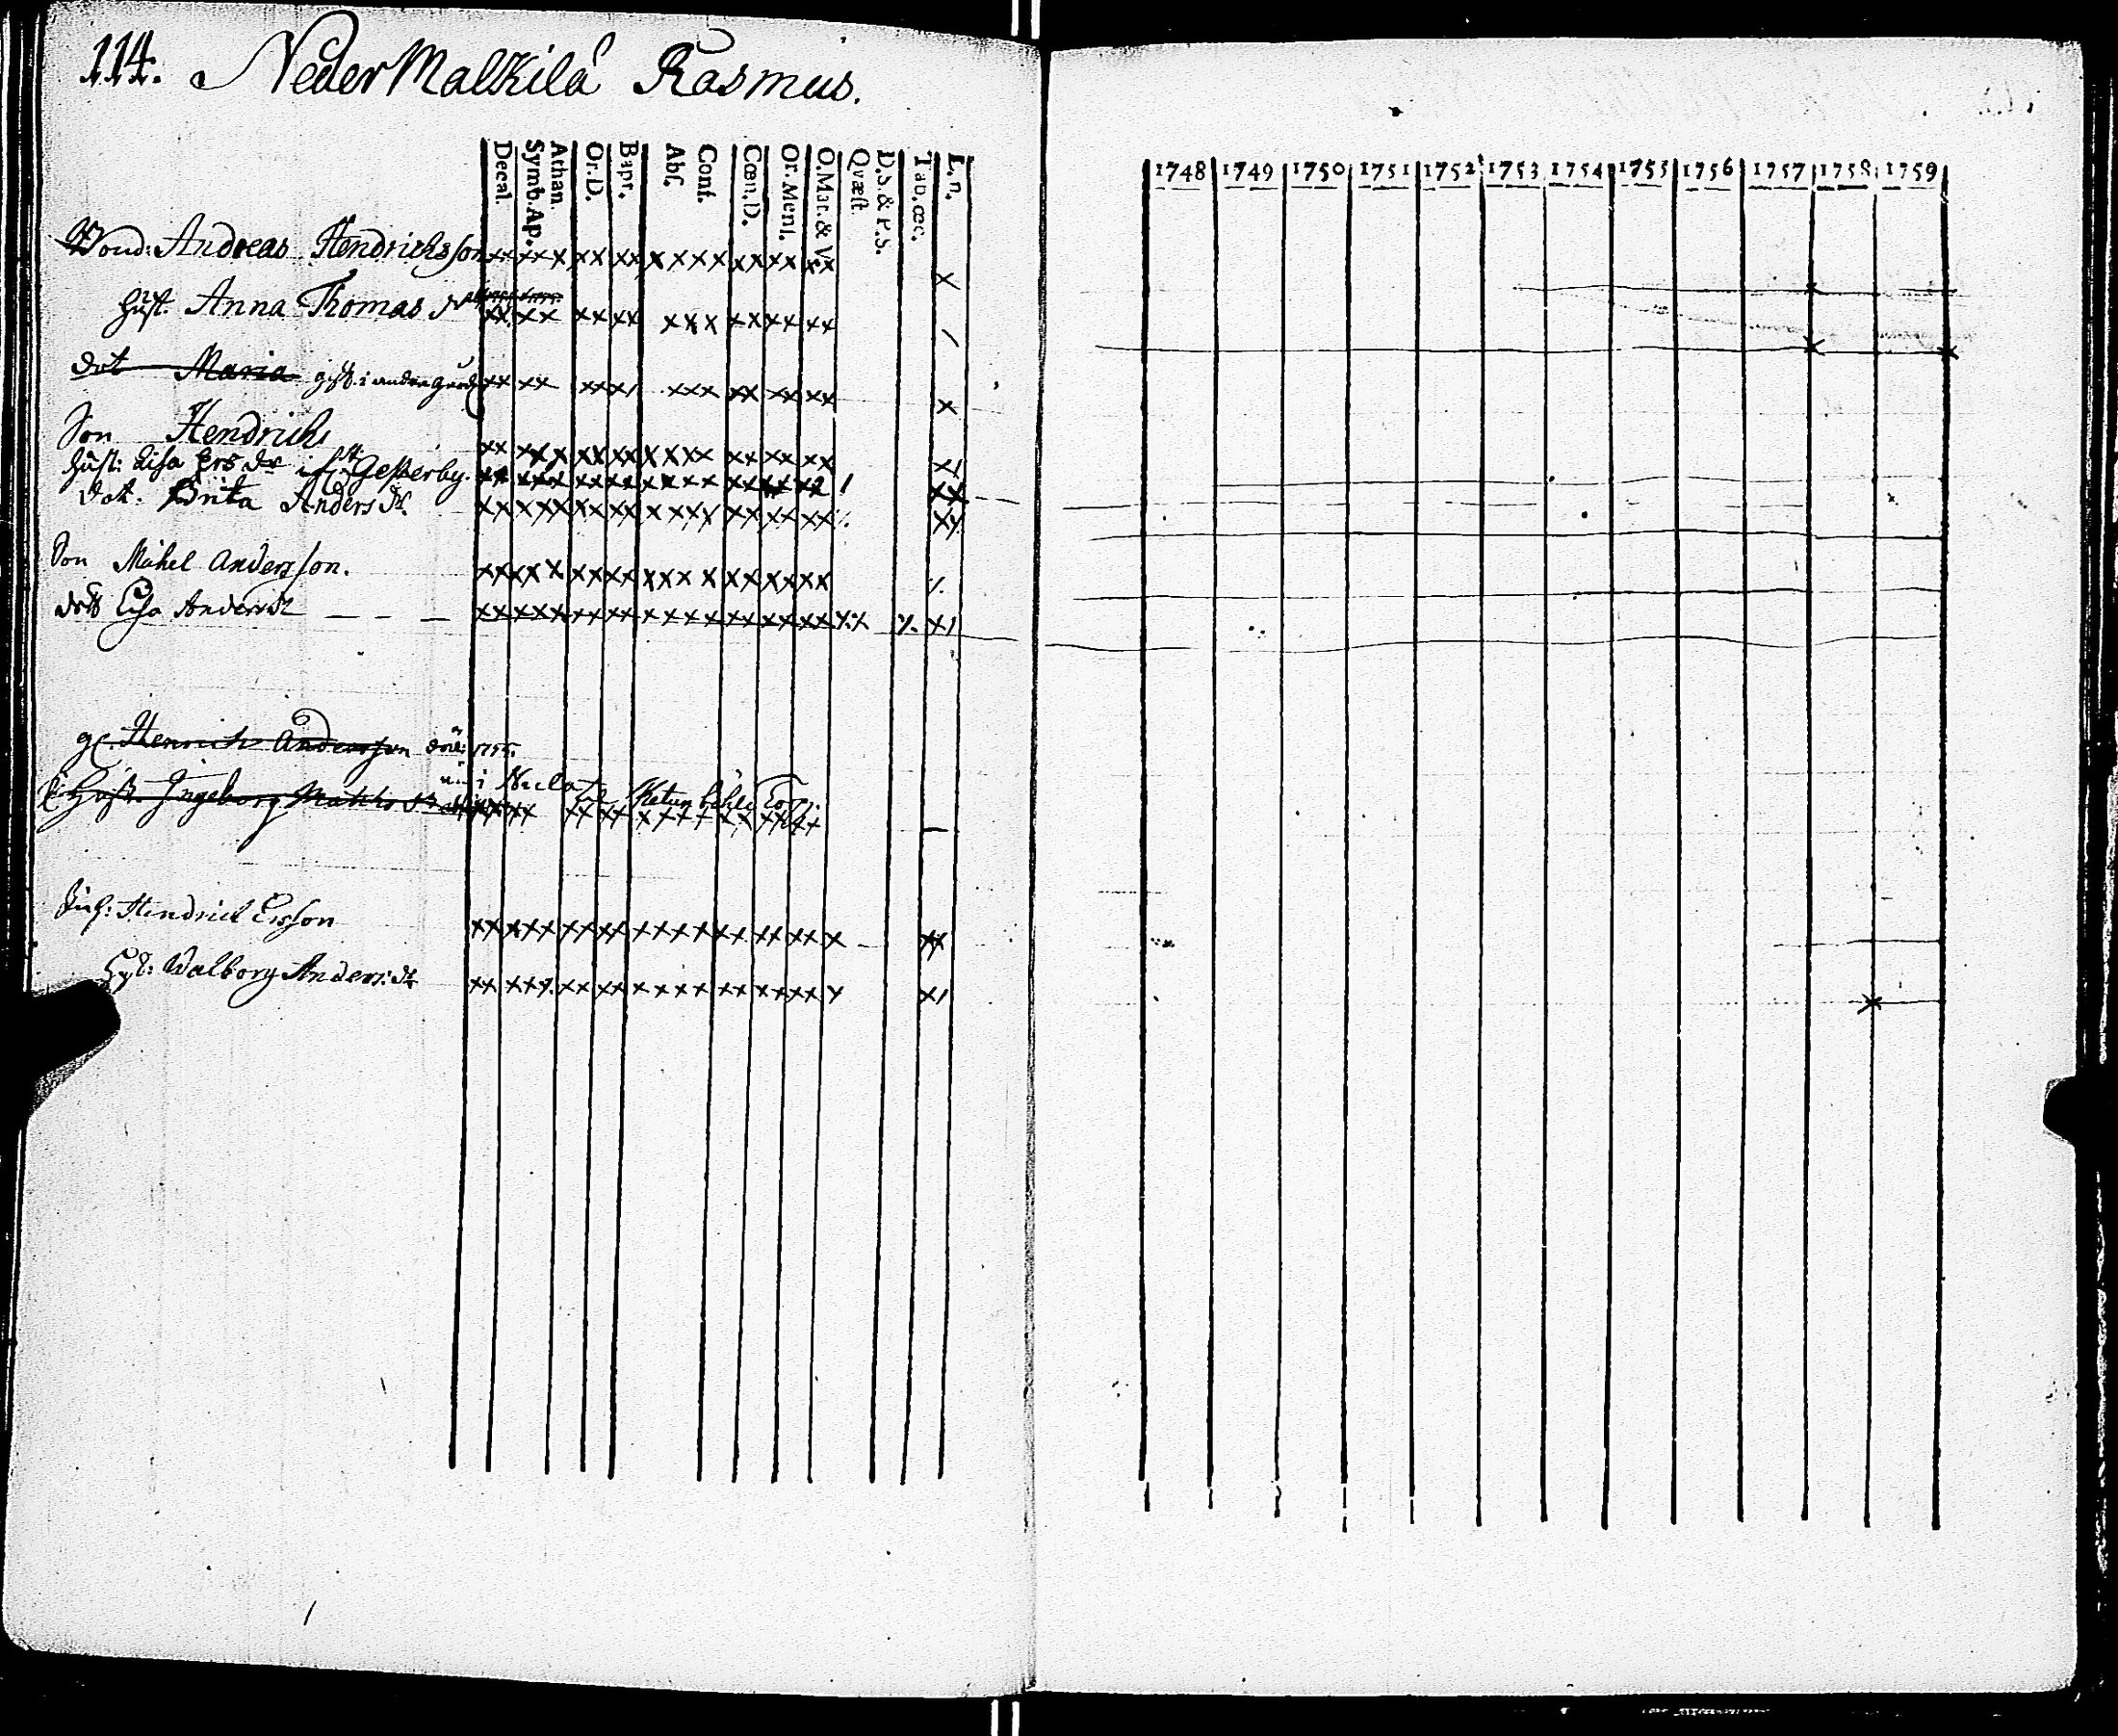 114. Neder Malkila Rasmus.
Decal. Symb. Ap. Athan. Or. D. Bapt. Abs. Conf. Cœn. D. Or. Mens. O. Mat. & V. Quæst. D. S. & P. S. Tab. œc. L. n.
1748 1749 1750 1751 1752 1753 1754 1755 1756 1757 1758 1759
Bond: Andreas Hendrichsson
Hust. Anna Thomas dr
dot Maria gift i andra gård
Son Hendrich
Hust: Lisa Ers dr i Gesterby.
Dot: Brita Anders dr.
Son Michel Andersson.
dott Lisa Anders dr
Henrich Andersson 1755.
i
Hust. Ingeborg Matths dr
Hendrich Ersson
Walborg Anders: dr